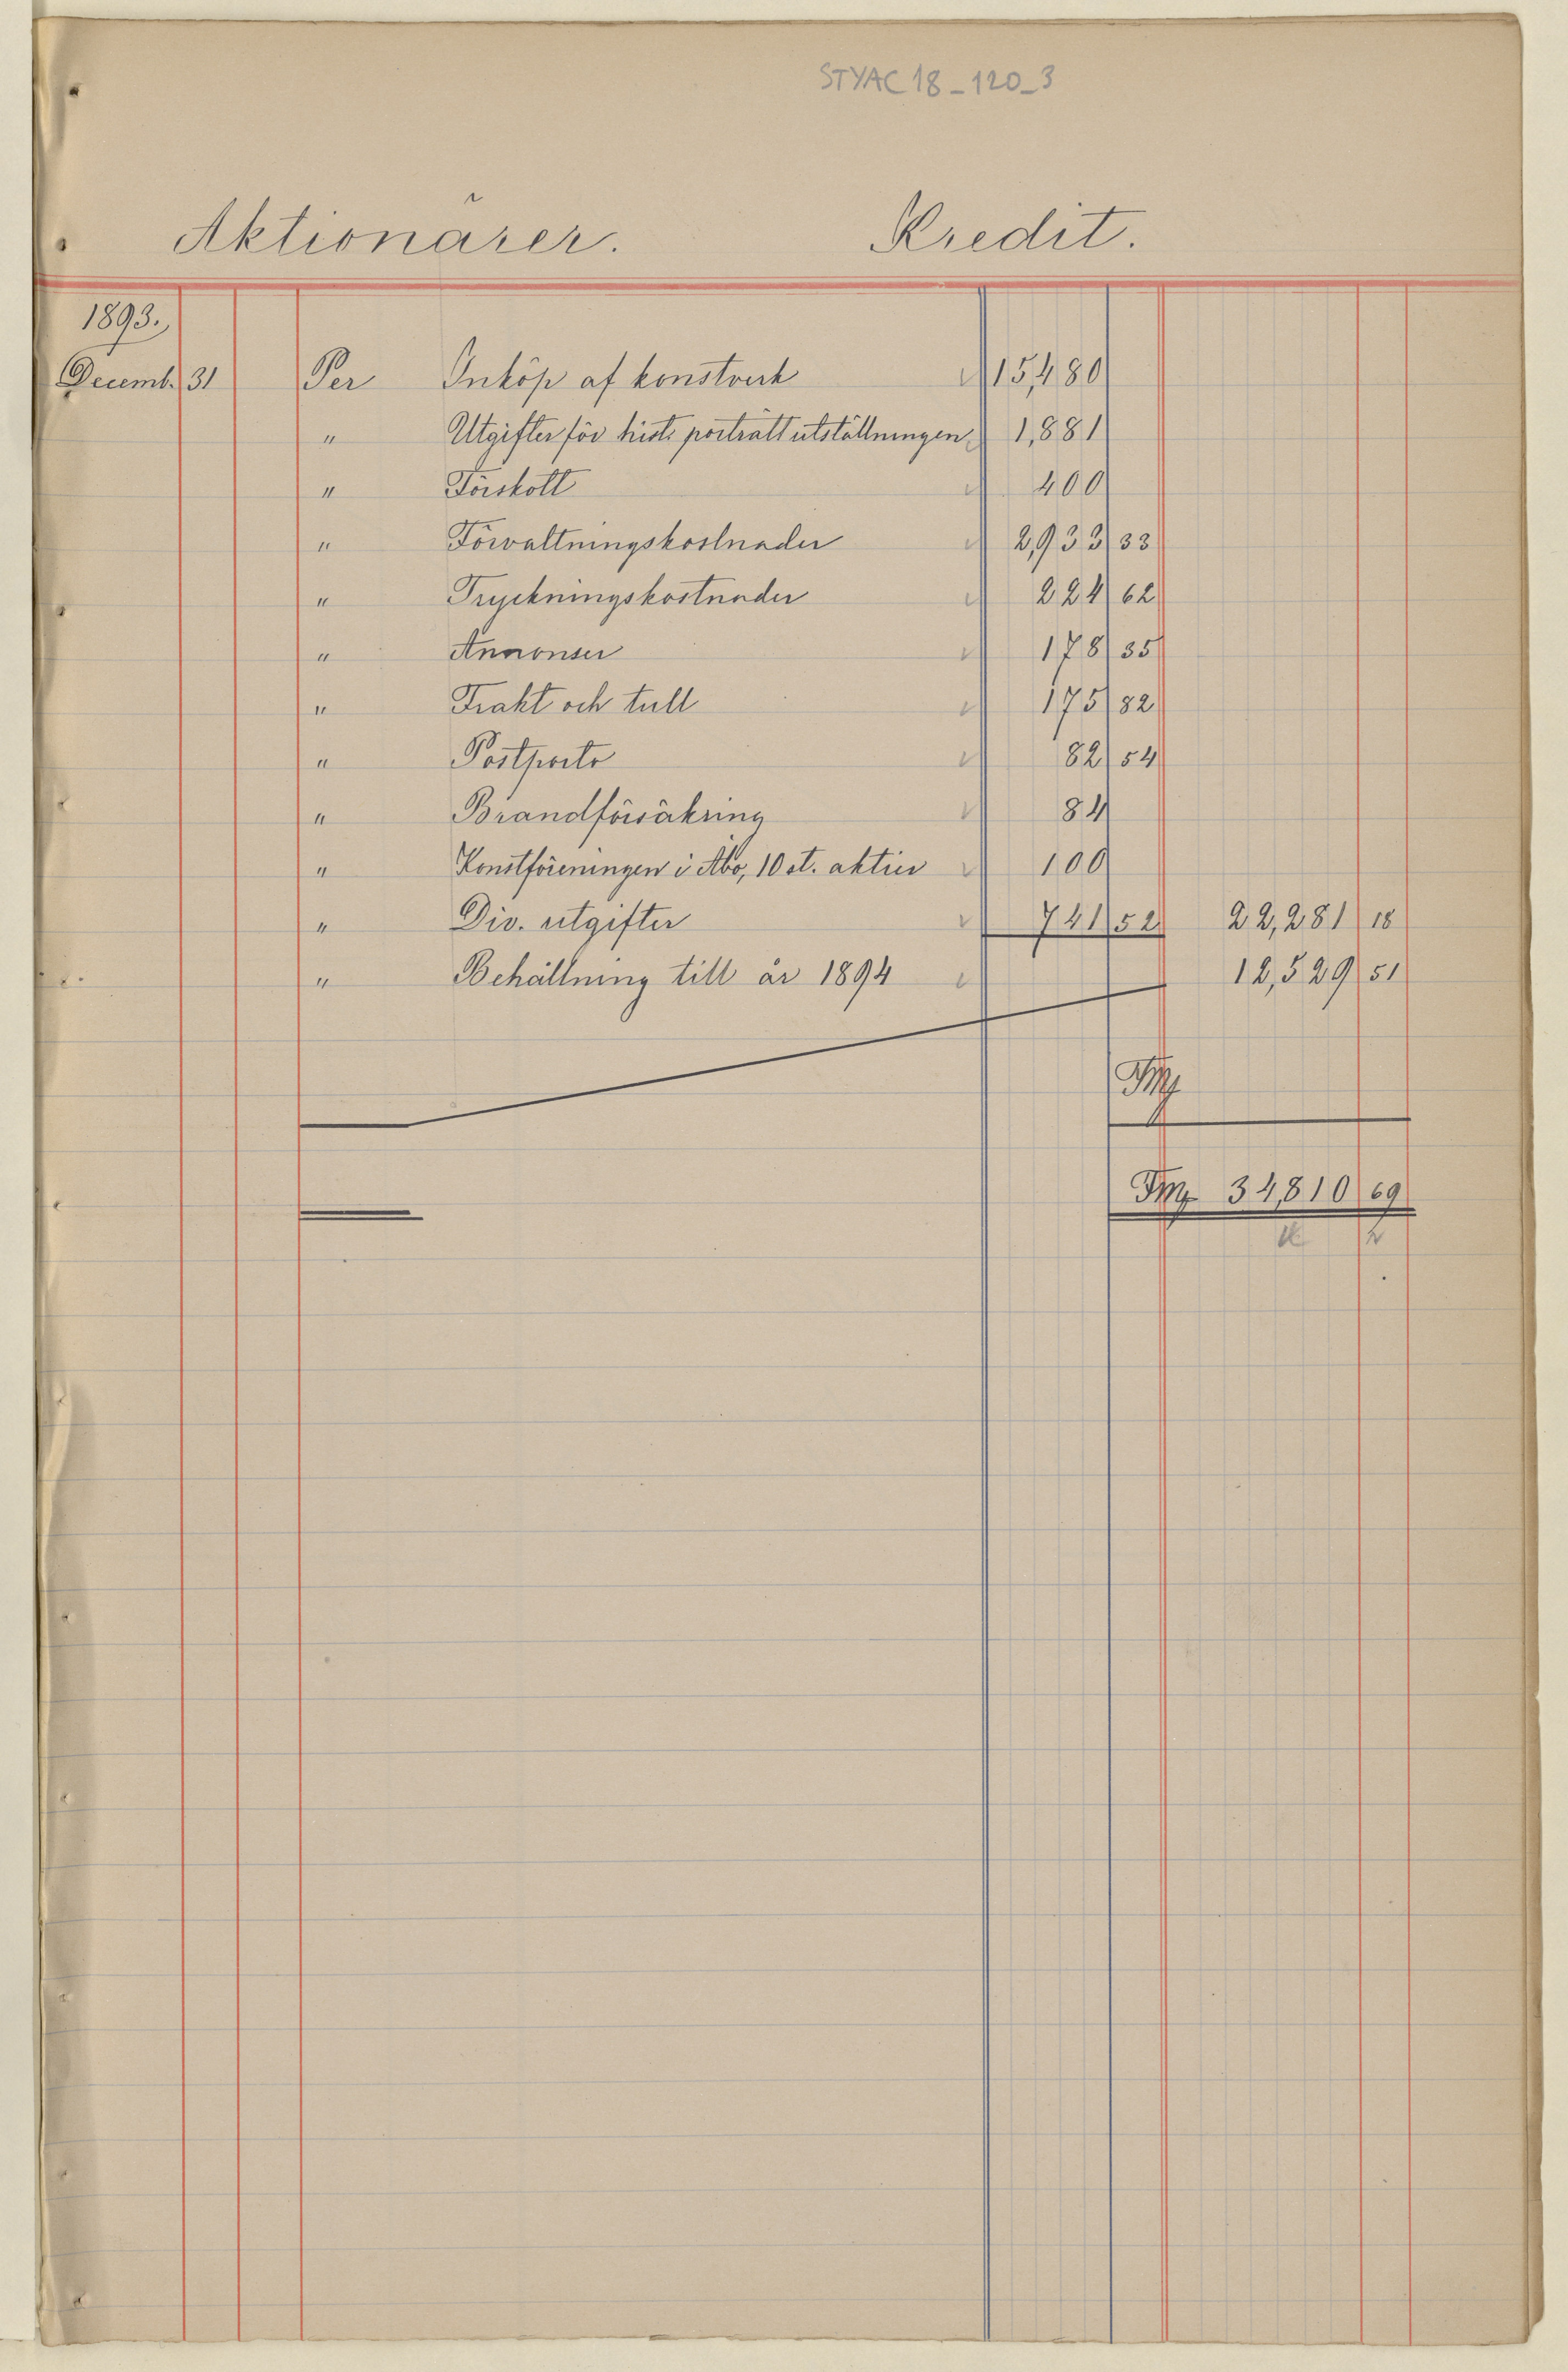 STYAC 18_120_3
Aktionärer. Kredit.
1893.
Decemb. 31 Per Inköp af konstverk 15,480
" Utgifter för hist. porträttutställningen 1,881
" Förskott 400
" Förvaltningskostnader 2,933 33
" Tryckningskostnader 224 62
" Annonser 178 35
" Frakt och tull 175 82
" Postporto 82 54
" Brandförsäkring 84
" Konstföreningen i Åbo, 10 st. aktier 100
" Div. utgifter 741 52 22,281 18
" Behållning till år 1894 12,529 51
Fmk
Fmk 34,810 69